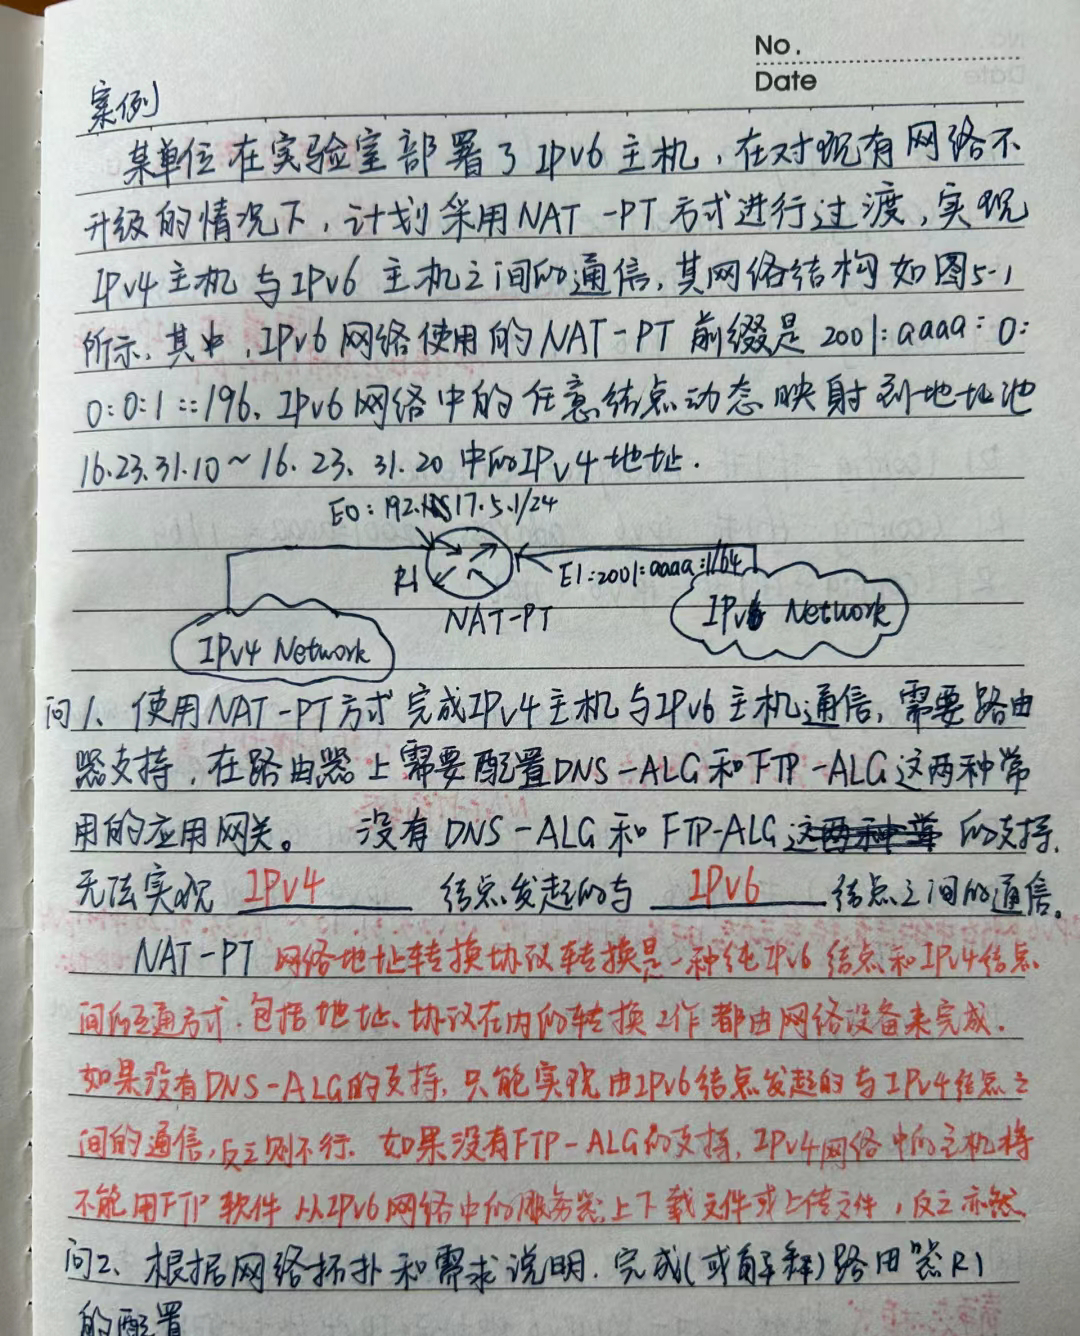 No.
Date
案例
某单位在实验室部署了IPv6主机,在对现有网络不
升级的情况下,计划采用NAT-PT方式进行过渡,实现
IPv4主机与IPv6主机之间的通信,其网络结构如图5-1
所示.其中,IPv6网络使用的NAT-PT前缀是2001:aaaa:0:
0:0:1::196,IPv6网络中的任意结点动态映射到地址池
16.23.31.10~16.23.31.20中的IPv4地址.
E0:192.17.5.1/24
R1
E1:2001:aaaa:1/64
NAT-PT
IPv4 Network
IPv6 Network
问1、使用NAT-PT方式完成IPv4主机与IPv6主机通信,需要路由
器支持,在路由器上需要配置DNS-ALG和FTP-ALG这两种常
用的应用网关。 没有DNS-ALG和FTP-ALG的支持,
无法实现 IPv4 结点发起的与 IPv6 结点之间的通信。
NAT-PT 网络地址转换协议转换是一种纯IPv6结点和IPv4结点
间的互通方式.包括地址、协议在内的转换工作都由网络设备来完成.
如果没有DNS-ALG的支持,只能实现由IPv6结点发起的与IPv4结点之
间的通信,反之则不行.如果没有FTP-ALG的支持,IPv4网络中的主机将
不能用FTP软件从IPv6网络中的服务器上下载文件或上传文件,反之亦然
问2、根据网络拓扑和需求说明.完成(或解释)路由器R1
的配置